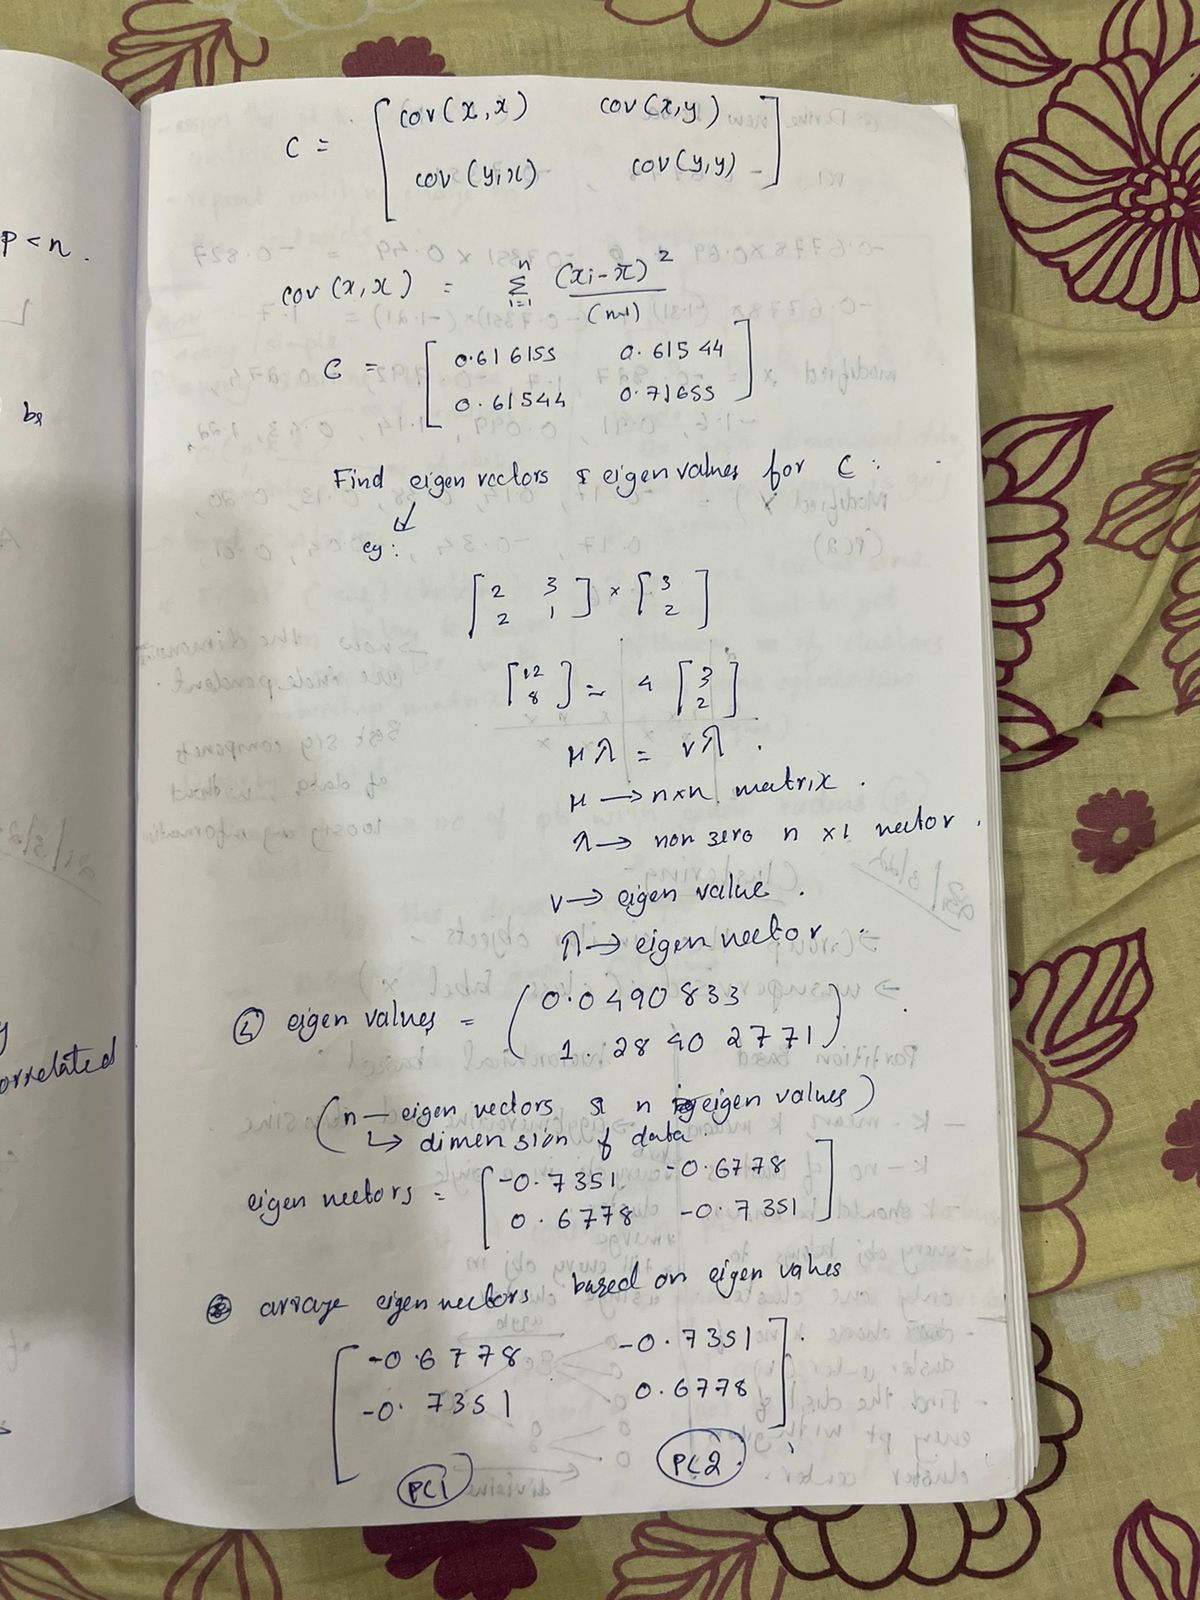 C = [ cov(x,x) cov(x,y)
cov(y,x) cov(y,y) ]
p<n.
cov(x,x) = n Σ i=1 (xi-x̄)² / (n-1)
C = [ 0.616155 0.61544
0.61544 0.71655 ]
be
Find eigen vectors & eigen values for C :
eg:
[ 2 3
2 1 ] × [ 3
2 ]
[ 12
8 ] = 4 [ 3
2 ]
Mλ = vλ .
M → n×n matrix .
λ → non zero n ×1 vector .
v → eigen value .
λ → eigen vector .
④ eigen values = ( 0.0490833
1.28402771 )
orrelated
( n — eigen vectors & n eigen values )
↳ dimension of data .
eigen vectors = [ -0.7351 -0.6778
0.6778 -0.7351 ]
arrange eigen vectors based on eigen values
[ -0.6778 -0.7351
-0.7351 0.6778 ] .
PC1 PC2 .